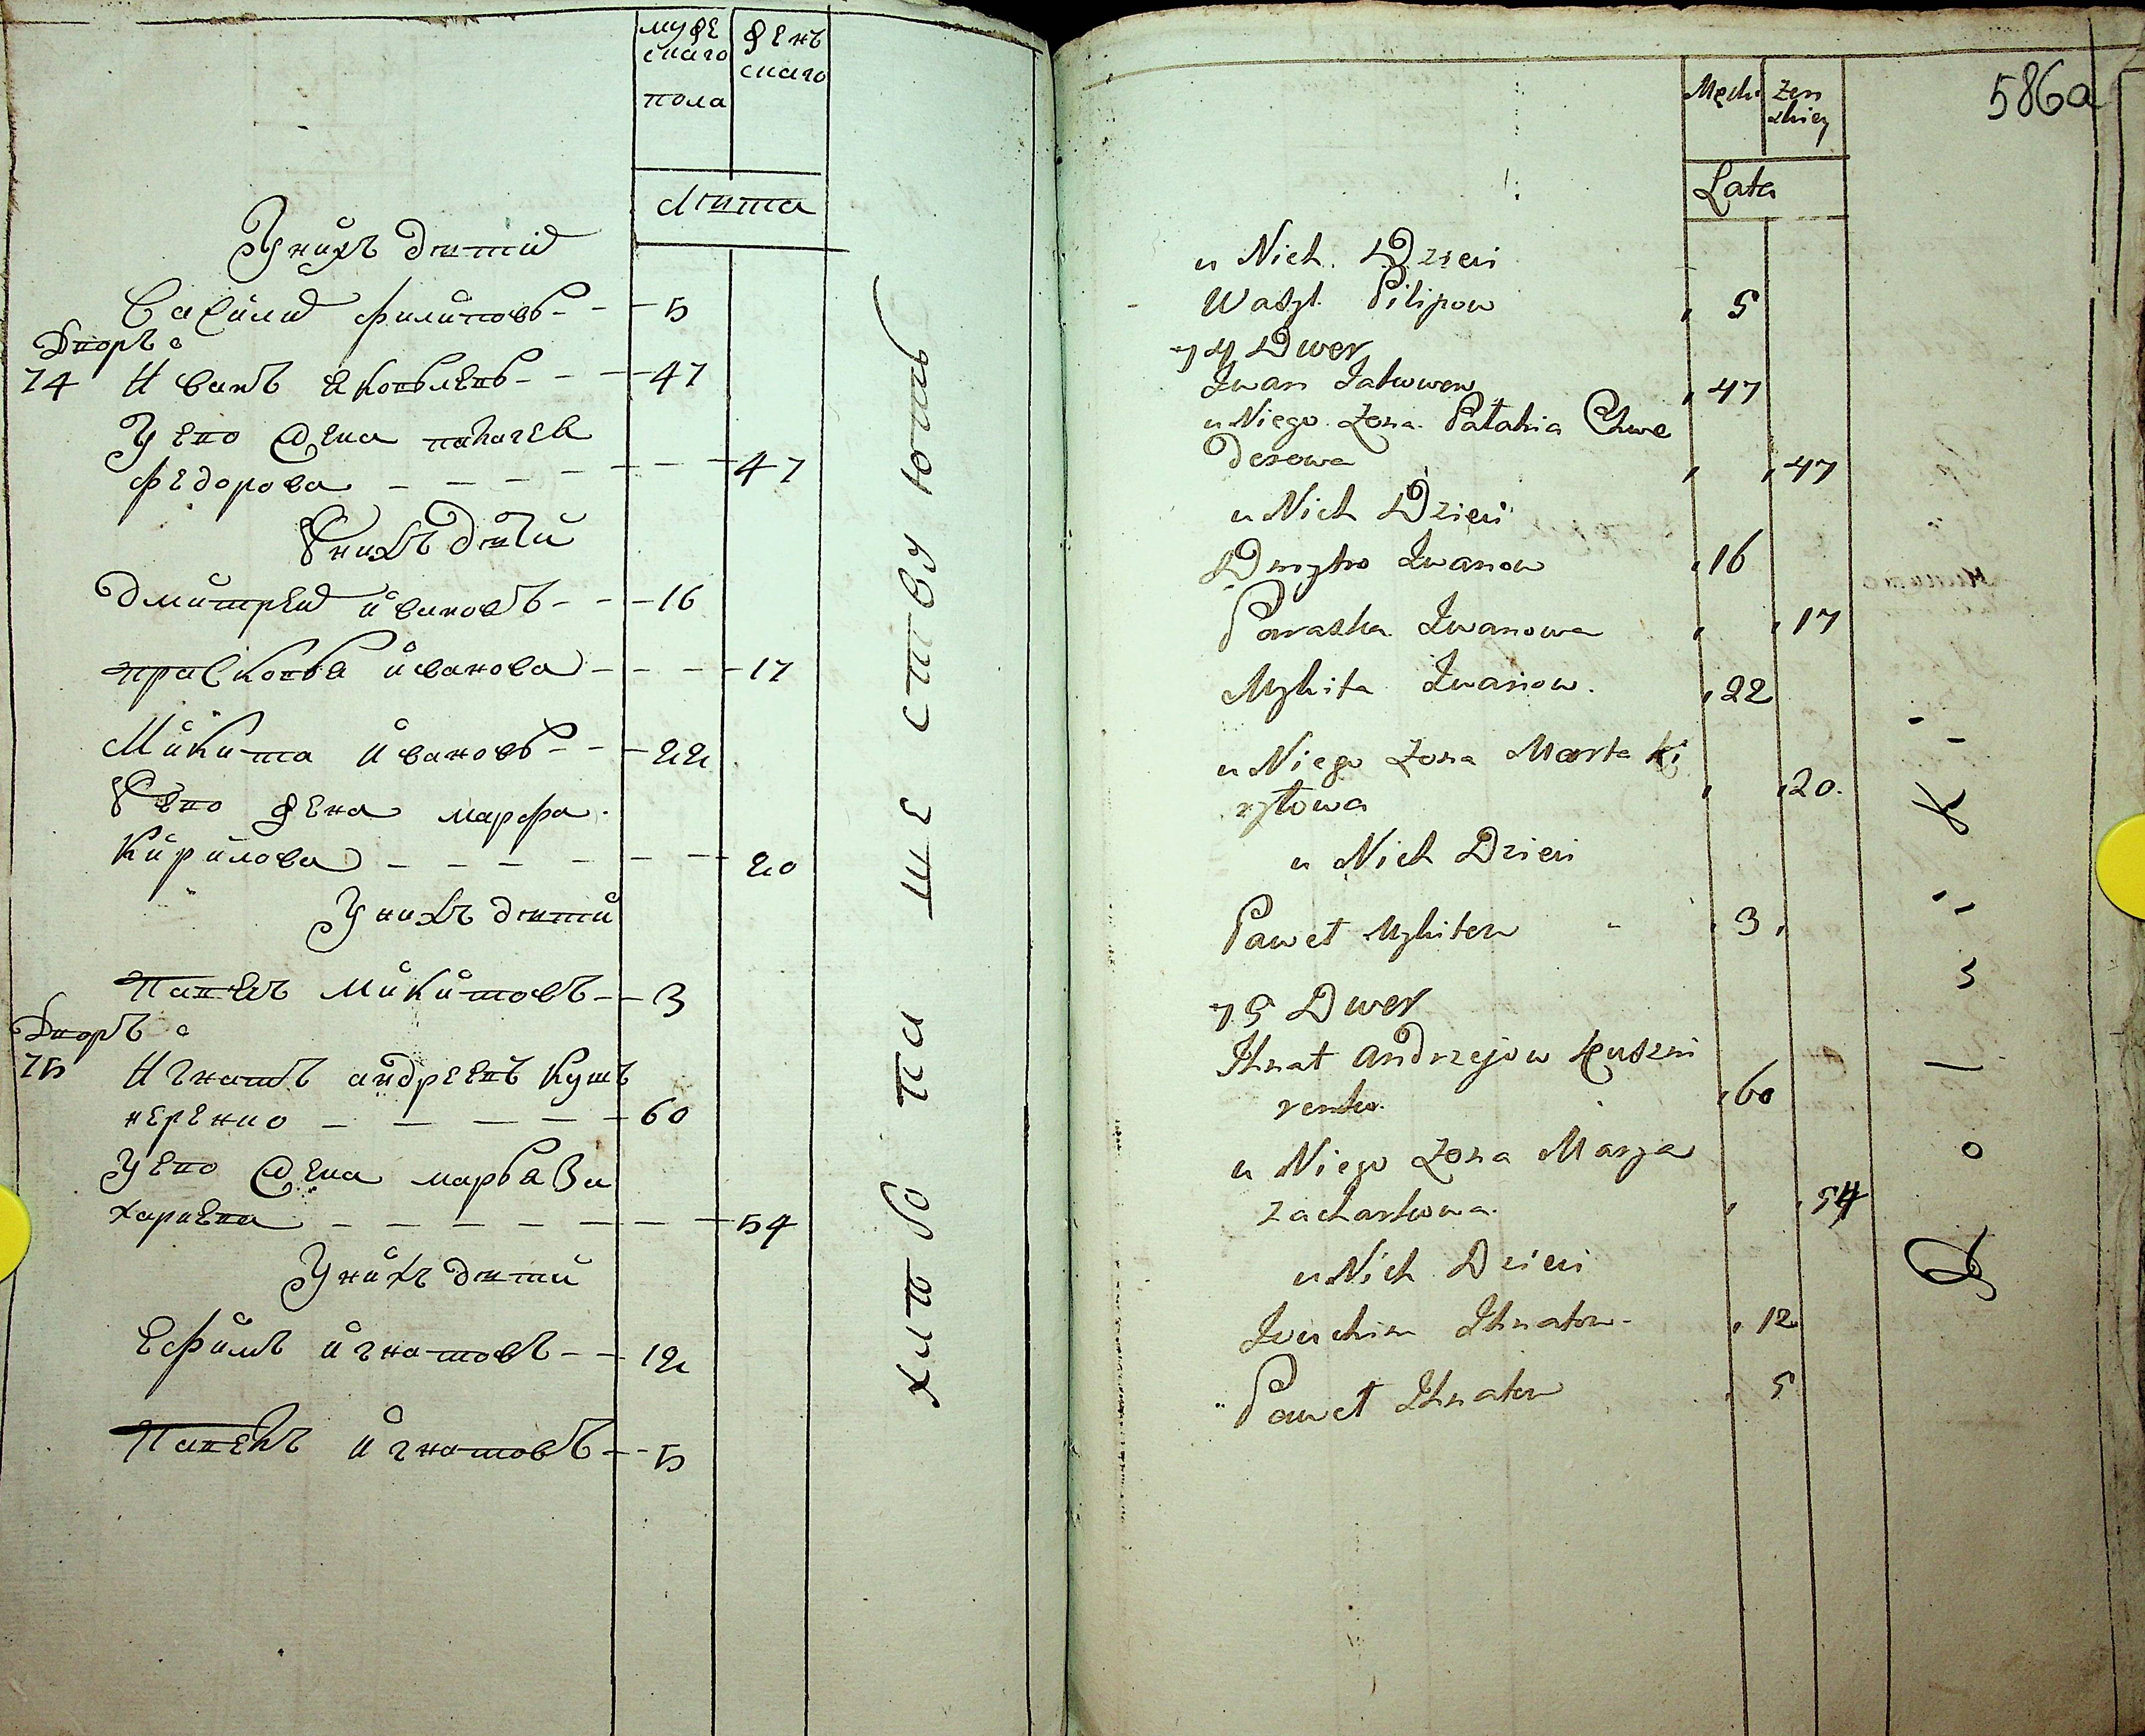 муже
скаго
пола
женъ
скаго
Лѣта
У нихъ дѣти
Василий филиповъ 5
Дворъ
74 Иванъ яковлевъ 47
У ево жена пелагея
федорова 47
У нихъ дѣти
Дмитрей ивановъ 16
прасковья иванова 17
Микита ивановъ 22
У ево жена марфа
Кирилова 20
У нихъ дѣти
Павелъ Микитовъ 3
Дворъ
75 Игнатъ андреевъ Куш
неренко 60
У ево жена марья За
харкева 54
У нихъ дѣти
Ефимъ игнатовъ 12
Павелъ игнатовъ 5
хлѣбо па ше ствують
586a
Męzk Żen
skiey
Lata
u Nich Dzieci
Waszyl Pilipow 5
74 Dwor
Iwan Jakowow 47
u Niego Żona Pałahia Chwe
derowa 47
u Nich Dzieci
Dmytro Iwanow 16
Paraska Iwanowa 17
Mykita Iwanow 22
u Niego Żona Marta Ki
ryłowa 20
u Nich Dzieci
Paweł Mykitow 3
75 Dwor
Ihnat Andrzejow Kuszni
renko 60
u Niego Żona Marya
Zacharkowa 54
u Nich Dzieci
Juchim Ihnatow 12
Paweł Ihnatow 5